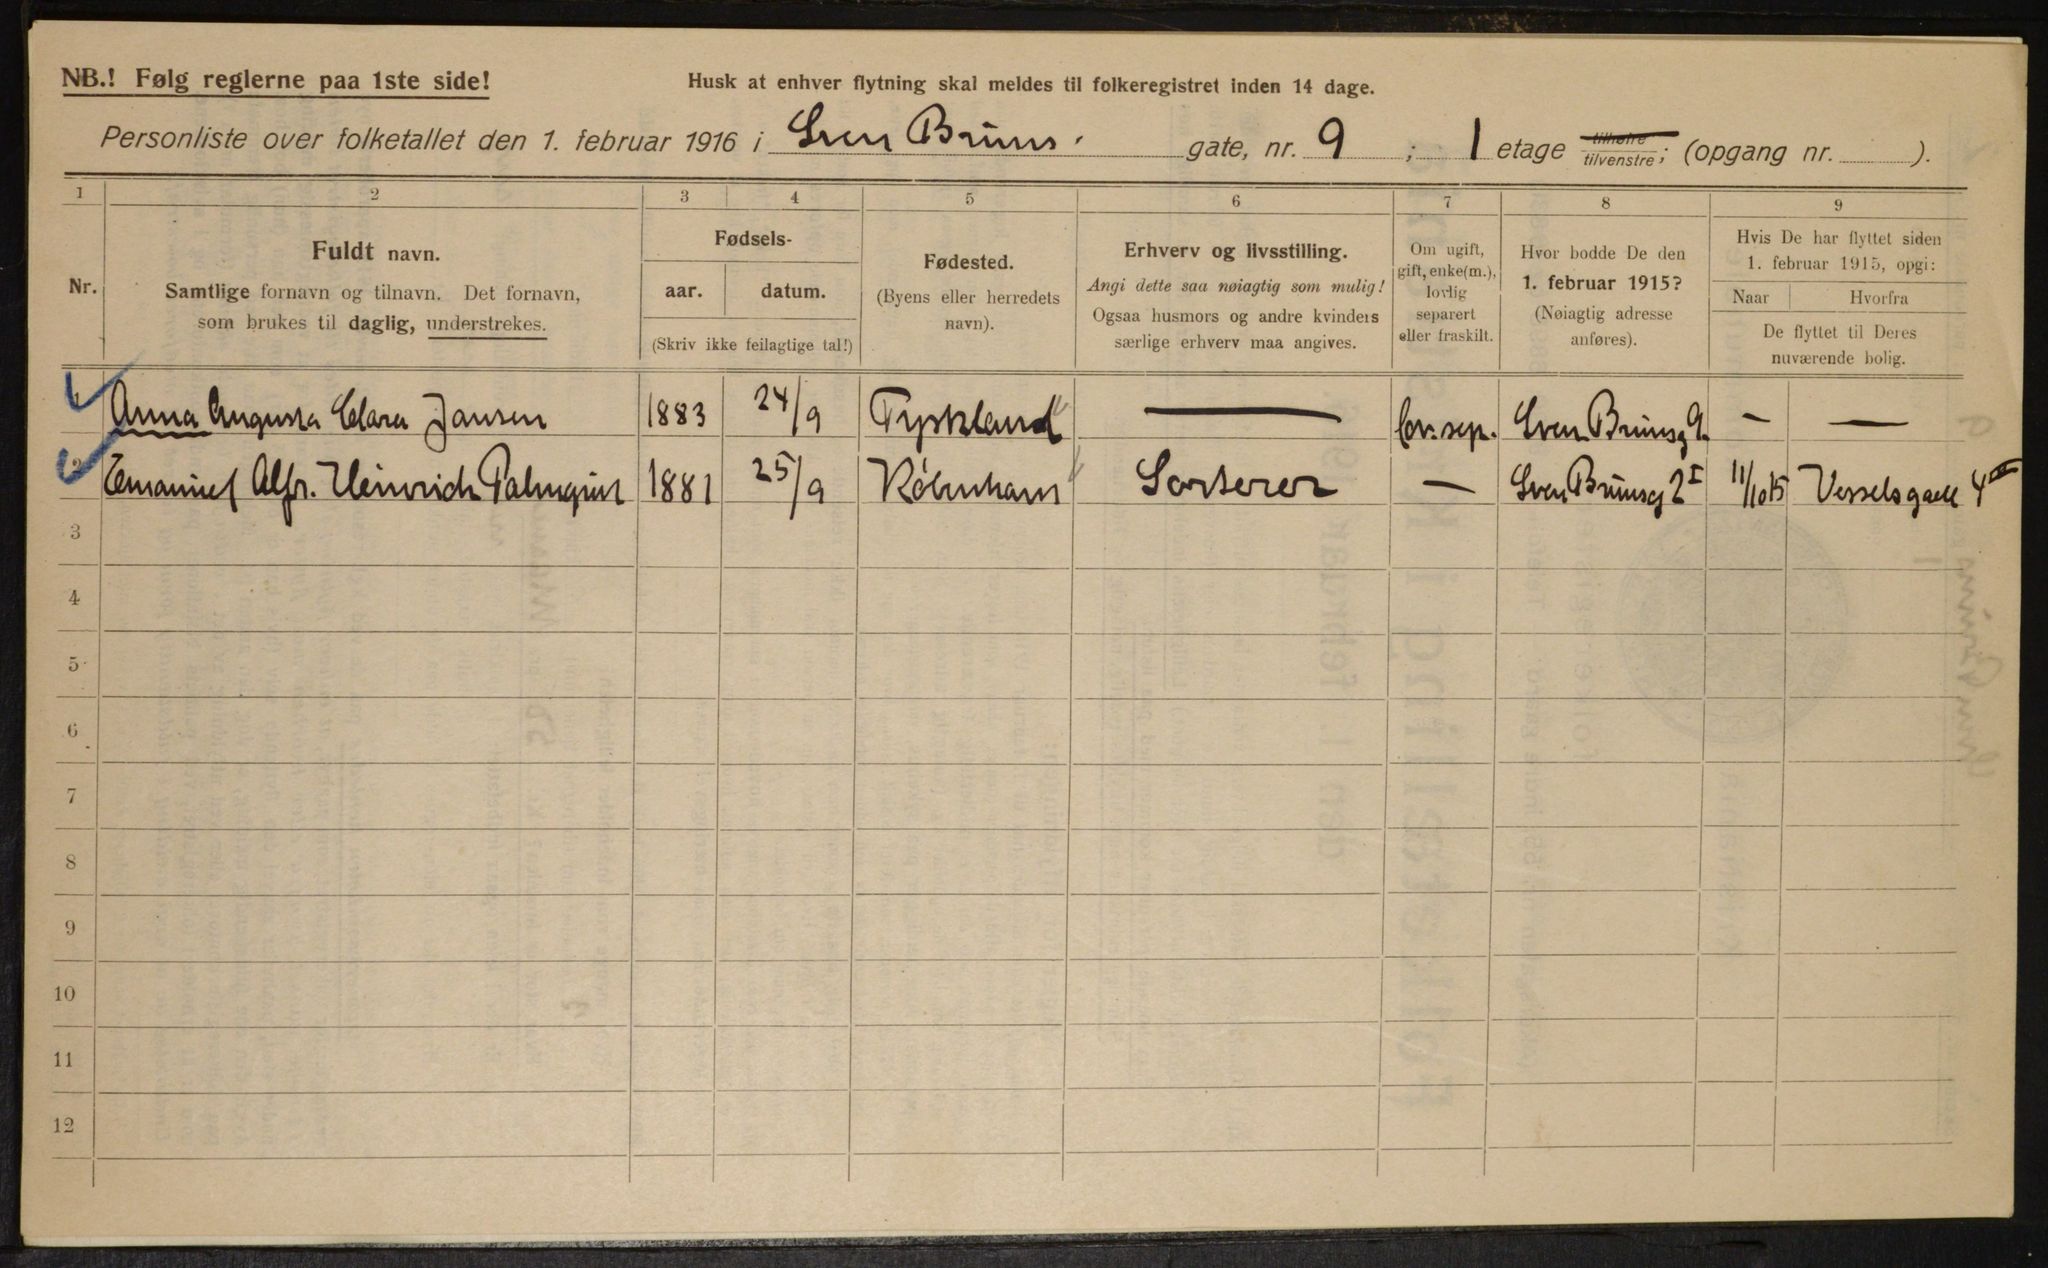 NB.! Følg reglerne paa 1ste side!
Husk at enhver flytning skal meldes til folkeregistret inden 14 dage.
Personliste over folketallet den 1. februar 1916 i Sven Bruns. gate, nr. 9 ; 1 etage tilhøire tilvenstre; (opgang nr. ).
1 2 3 4 5 6 7 8 9
Nr.
Fuldt navn.
Samtlige fornavn og tilnavn. Det fornavn,
som brukes til daglig, understrekes.
Fødsels-
aar. datum.
(Skriv ikke feilagtige tal!)
Fødested.
(Byens eller herredets
navn).
Erhverv og livsstilling.
Angi dette saa nøiagtig som mulig!
Ogsaa husmors og andre kvinders
særlige erhverv maa angives.
Om ugift,
gift, enke(m.),
lovlig
separert
eller fraskilt.
Hvor bodde De den
1. februar 1915?
(Nøiagtig adresse
anføres).
Hvis De har flyttet siden
1. februar 1915, opgi:
Naar Hvorfra
De flyttet til Deres
nuværende bolig.
1 Anna Augusta Clara Jansen 1883 24/9 Tyskland — lov. sep. Sven Brunsg 9. — —
2 Emanuel Alfr. Heinrich Palmquist 1881 25/9 Købnhavn Sorterer — Sven Brunsg 2 I 11/10 15 Vesselsgate 4 III
3
4
5
6
7
8
9
10
11
12